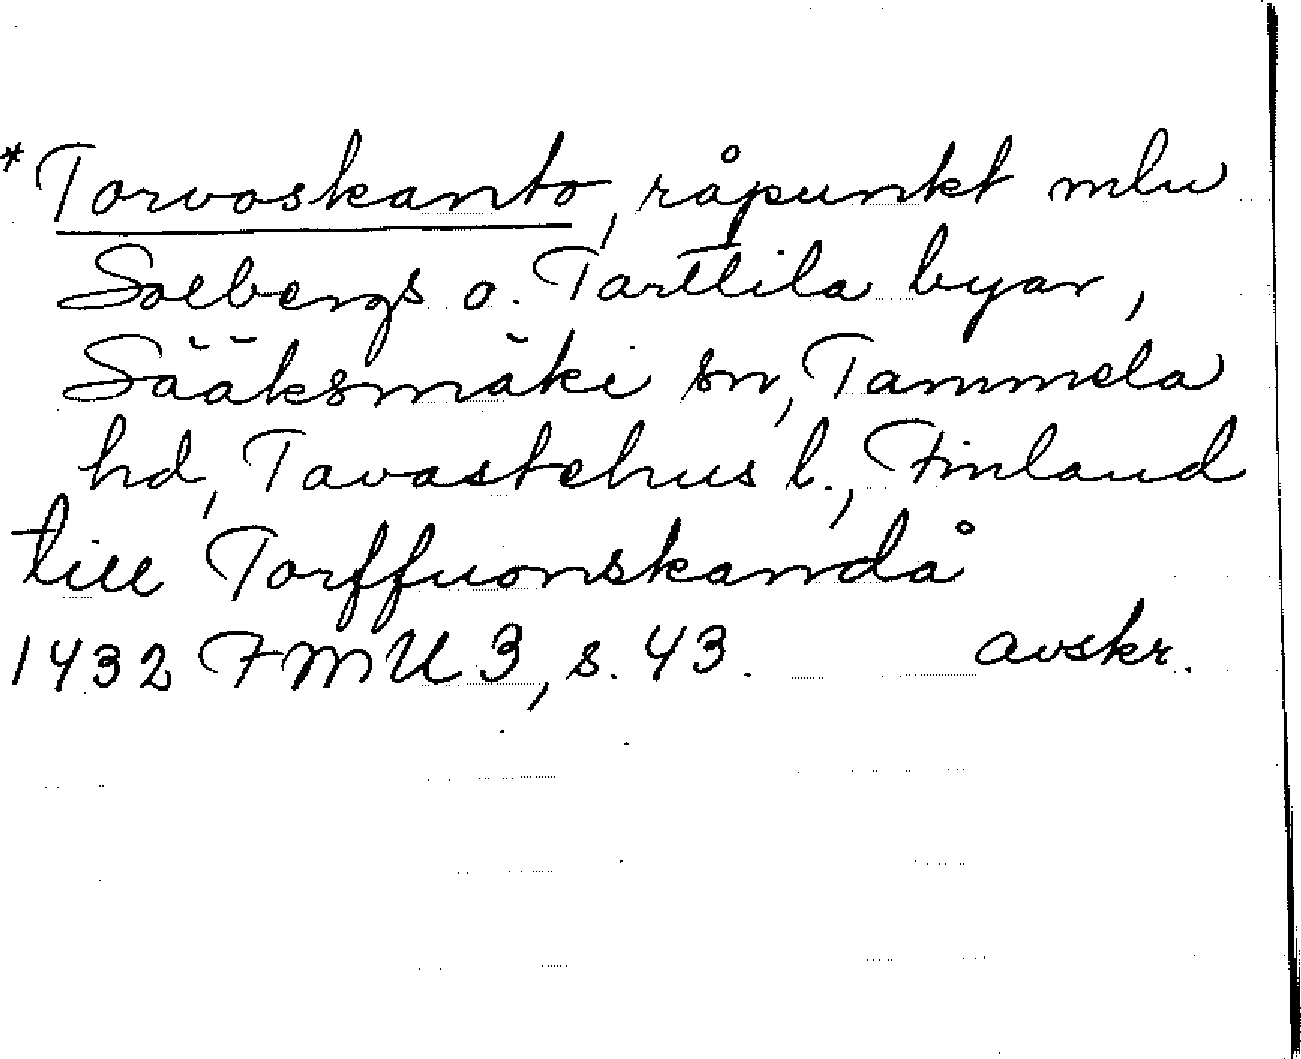 *Torvoskanto, råpunkt mlu
Solbergs o. Tarttila byar,
Sääksmäki sn, Tammela
hd, Tavastehus l., Finland
till Torffuonskandå
1432 FMU 3, s. 43. avskr.